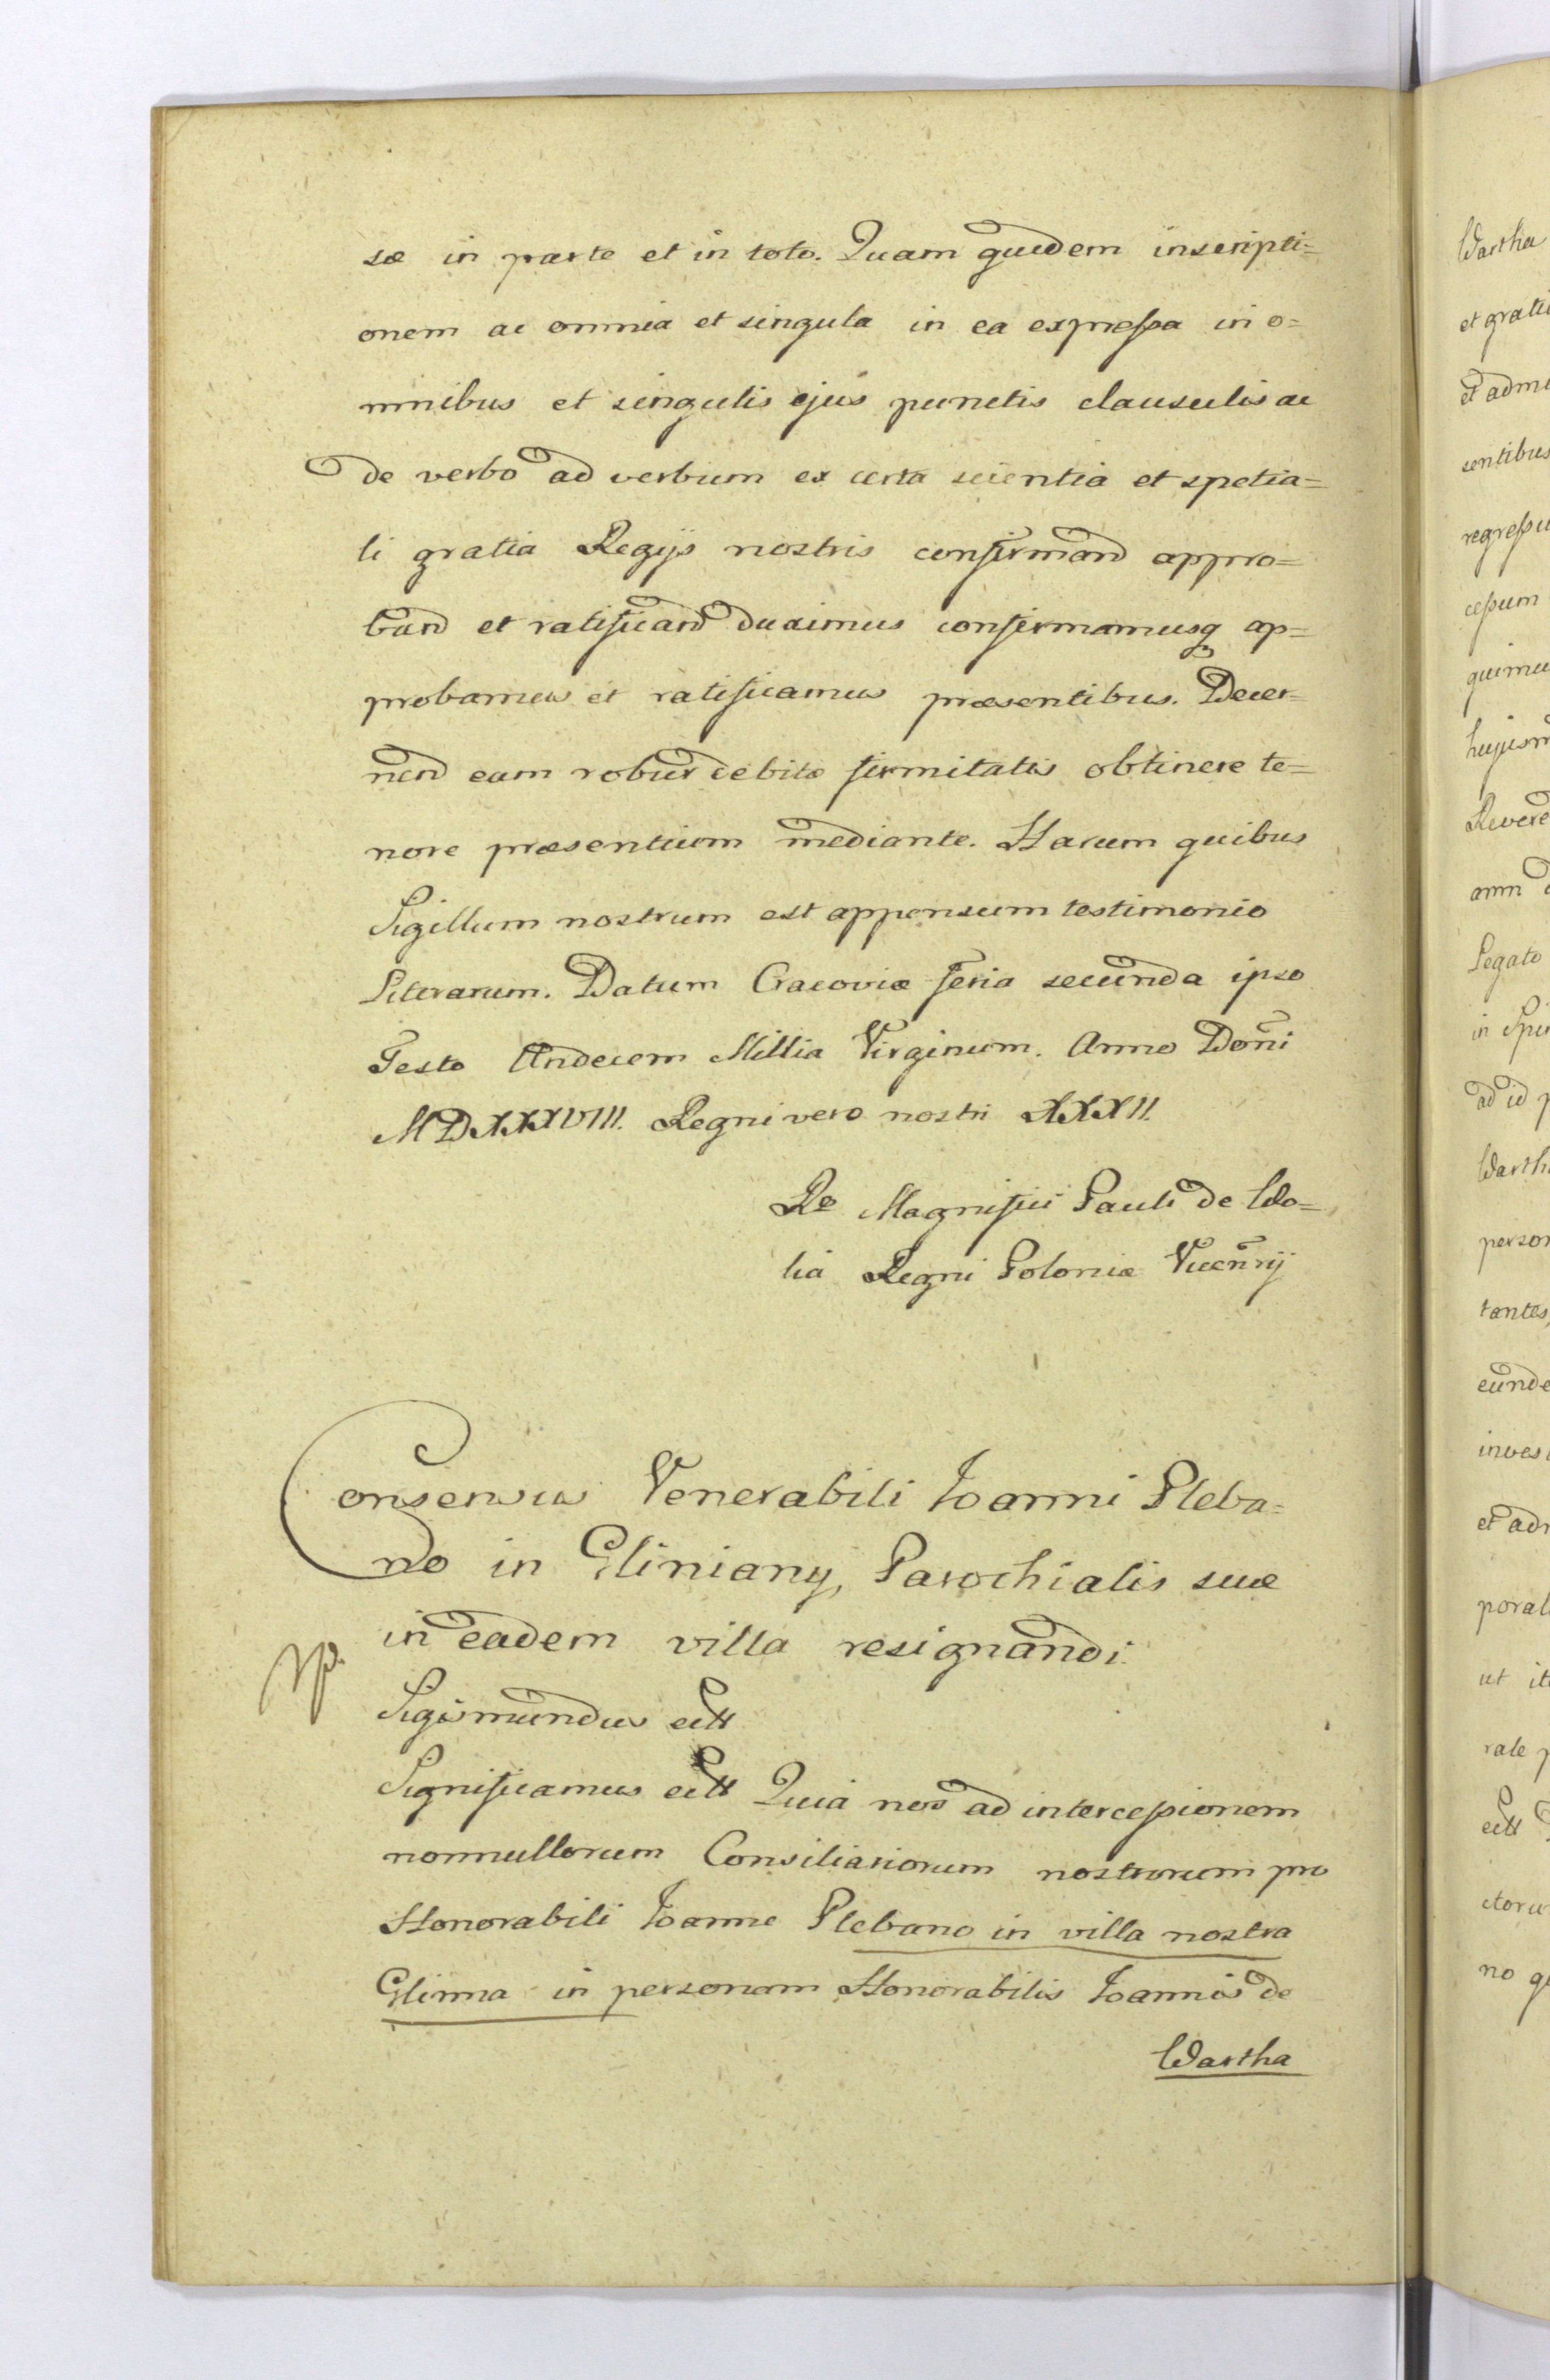 sæ in parte et in toto. Quam quidem inscripti=
onem ac omnia et singula in ea expressa in o=
mnibus et singulis ejus punctis clausulis ac
de verbo ad verbum ex certa scientia et spetia=
li gratia Regijs nostris confirmand appro=
band et ratificand duximus confirmamusq ap=
probamus et ratificamus præsentibus. Decer=
nend eam robur debitæ firmitatis obtinere te=
nore præsentium mediante. Harum quibus
Sigillum nostrum est appensum testimonio
Literarum. Datum Cracoviæ feria secunda ipso
Festo Undecem Millia Virginum. Anno Doñi
MDXXXVIII. Regni vero nostri XXXII.
Ro Magnifici Pauli de Wo=
lia Regni Poloniæ Vicenrij
Consensus Venerabili Joanni Pleba=
no in Gliniany, Parochialis suæ
in eadem villa resignandi
Sigismundus ectt
Significamus ectt Quia nos ad intercessionem
nonnullorum Consiliariorum nostrorum pro
Honorabili Joanne Plebano in villa nostra
Glinna in personam Honorabilis Joannis de
Wartha
Wartha
et grati
et admi
sentibus
regressu
cessum
quimu
hujusm
Revere
amn
Legato
in Spi
ad id p
Warth
person
tantes,
eunde
invest
et adm
poral
ut it
rale p
ectt
ctoru
no q